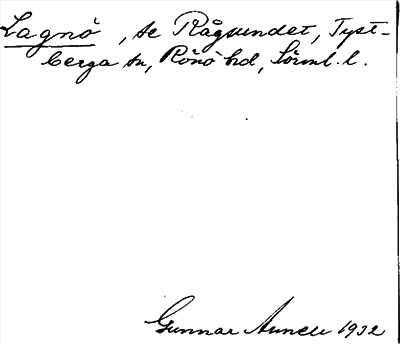 Lagnö, se Rågsundet, Tyst-
berga sn, Rönö hd, Sörml. l.
Gunnar 1932